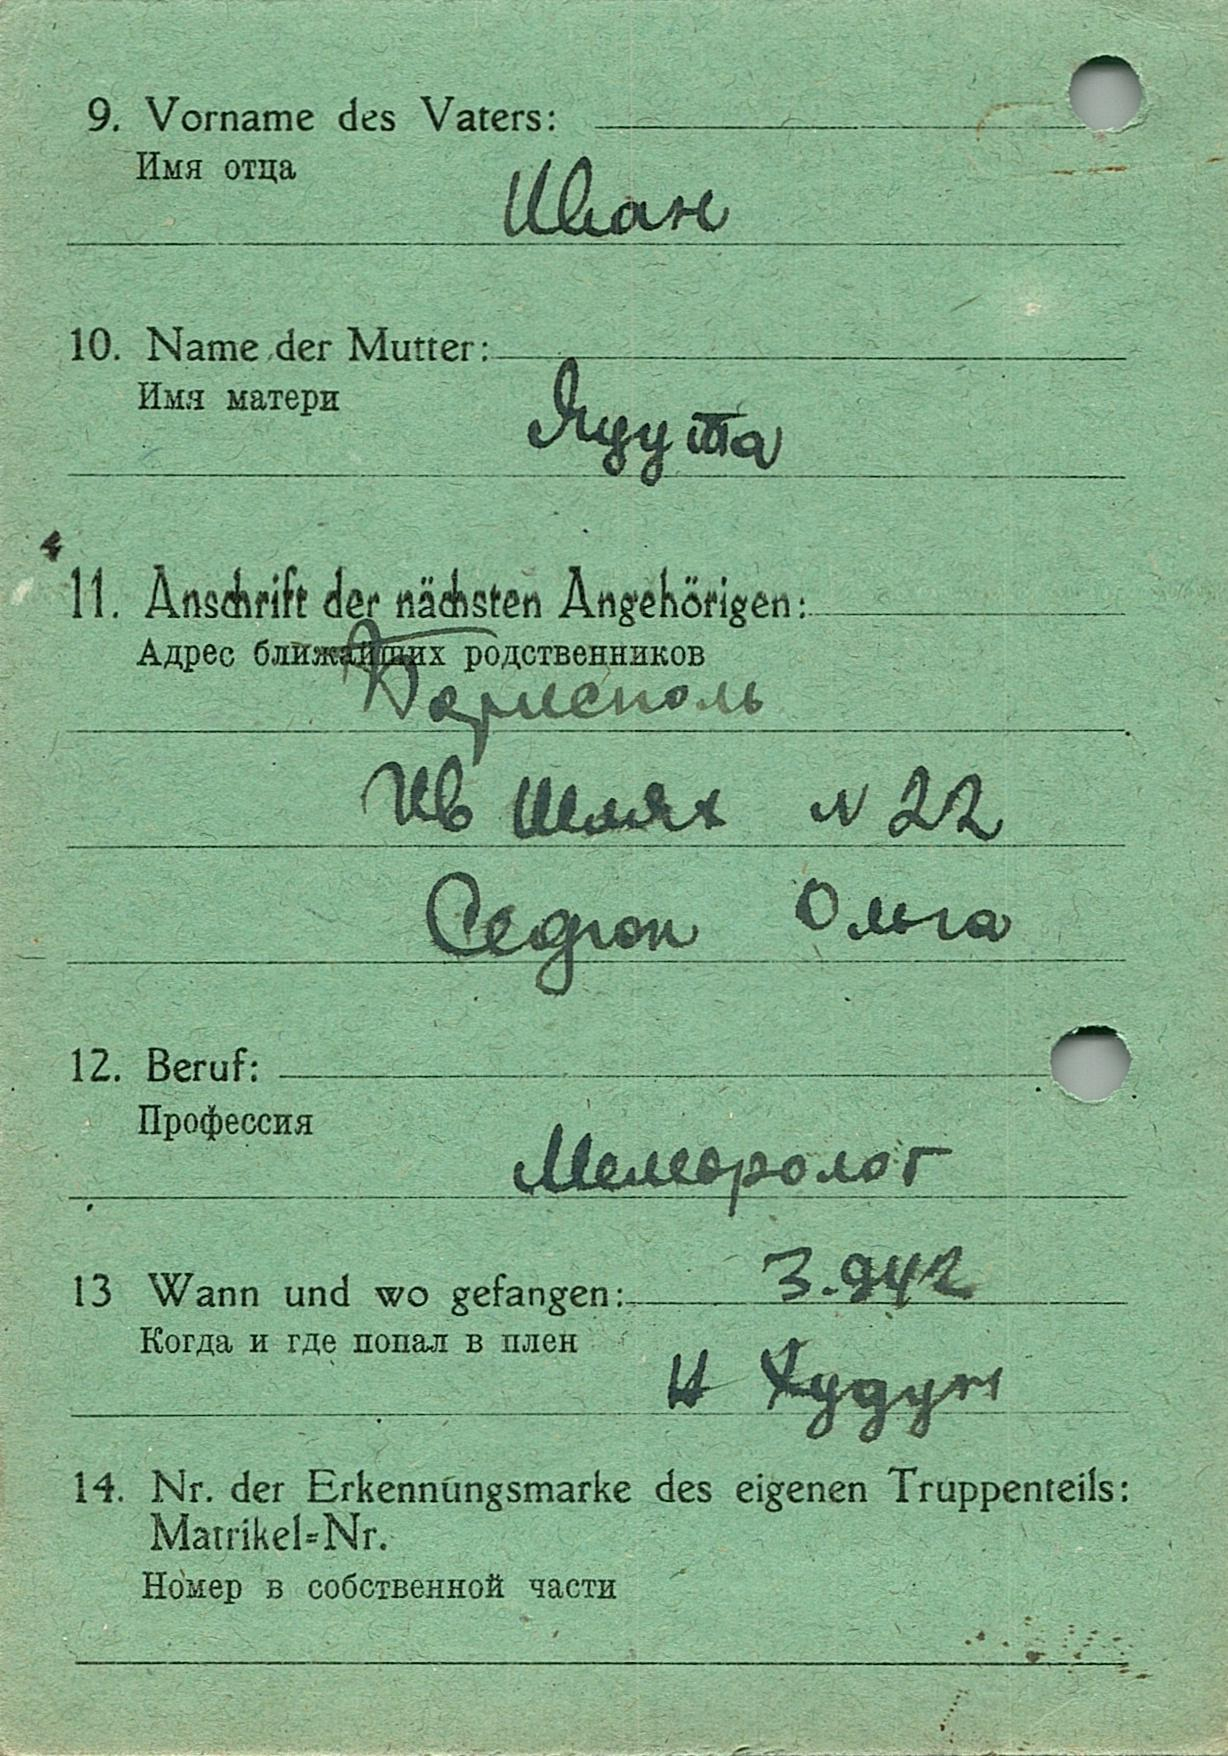 9. Vorname des Vaters:
Имя отца
Иван
10. Name der Mutter:
Имя матери
11. Anschrift der nächsten Angehörigen:
Адрес ближайших родственников
Бориспол
Кв Шлях № 22
Седюк Ольга
12. Beruf:
Профессия
13 Wann und wo gefangen: 3.942
Когда и где попал в плен
14. Nr. der Erkennungsmarke des eigenen Truppenteils:
Matrikel=Nr.
Номер в собственной части